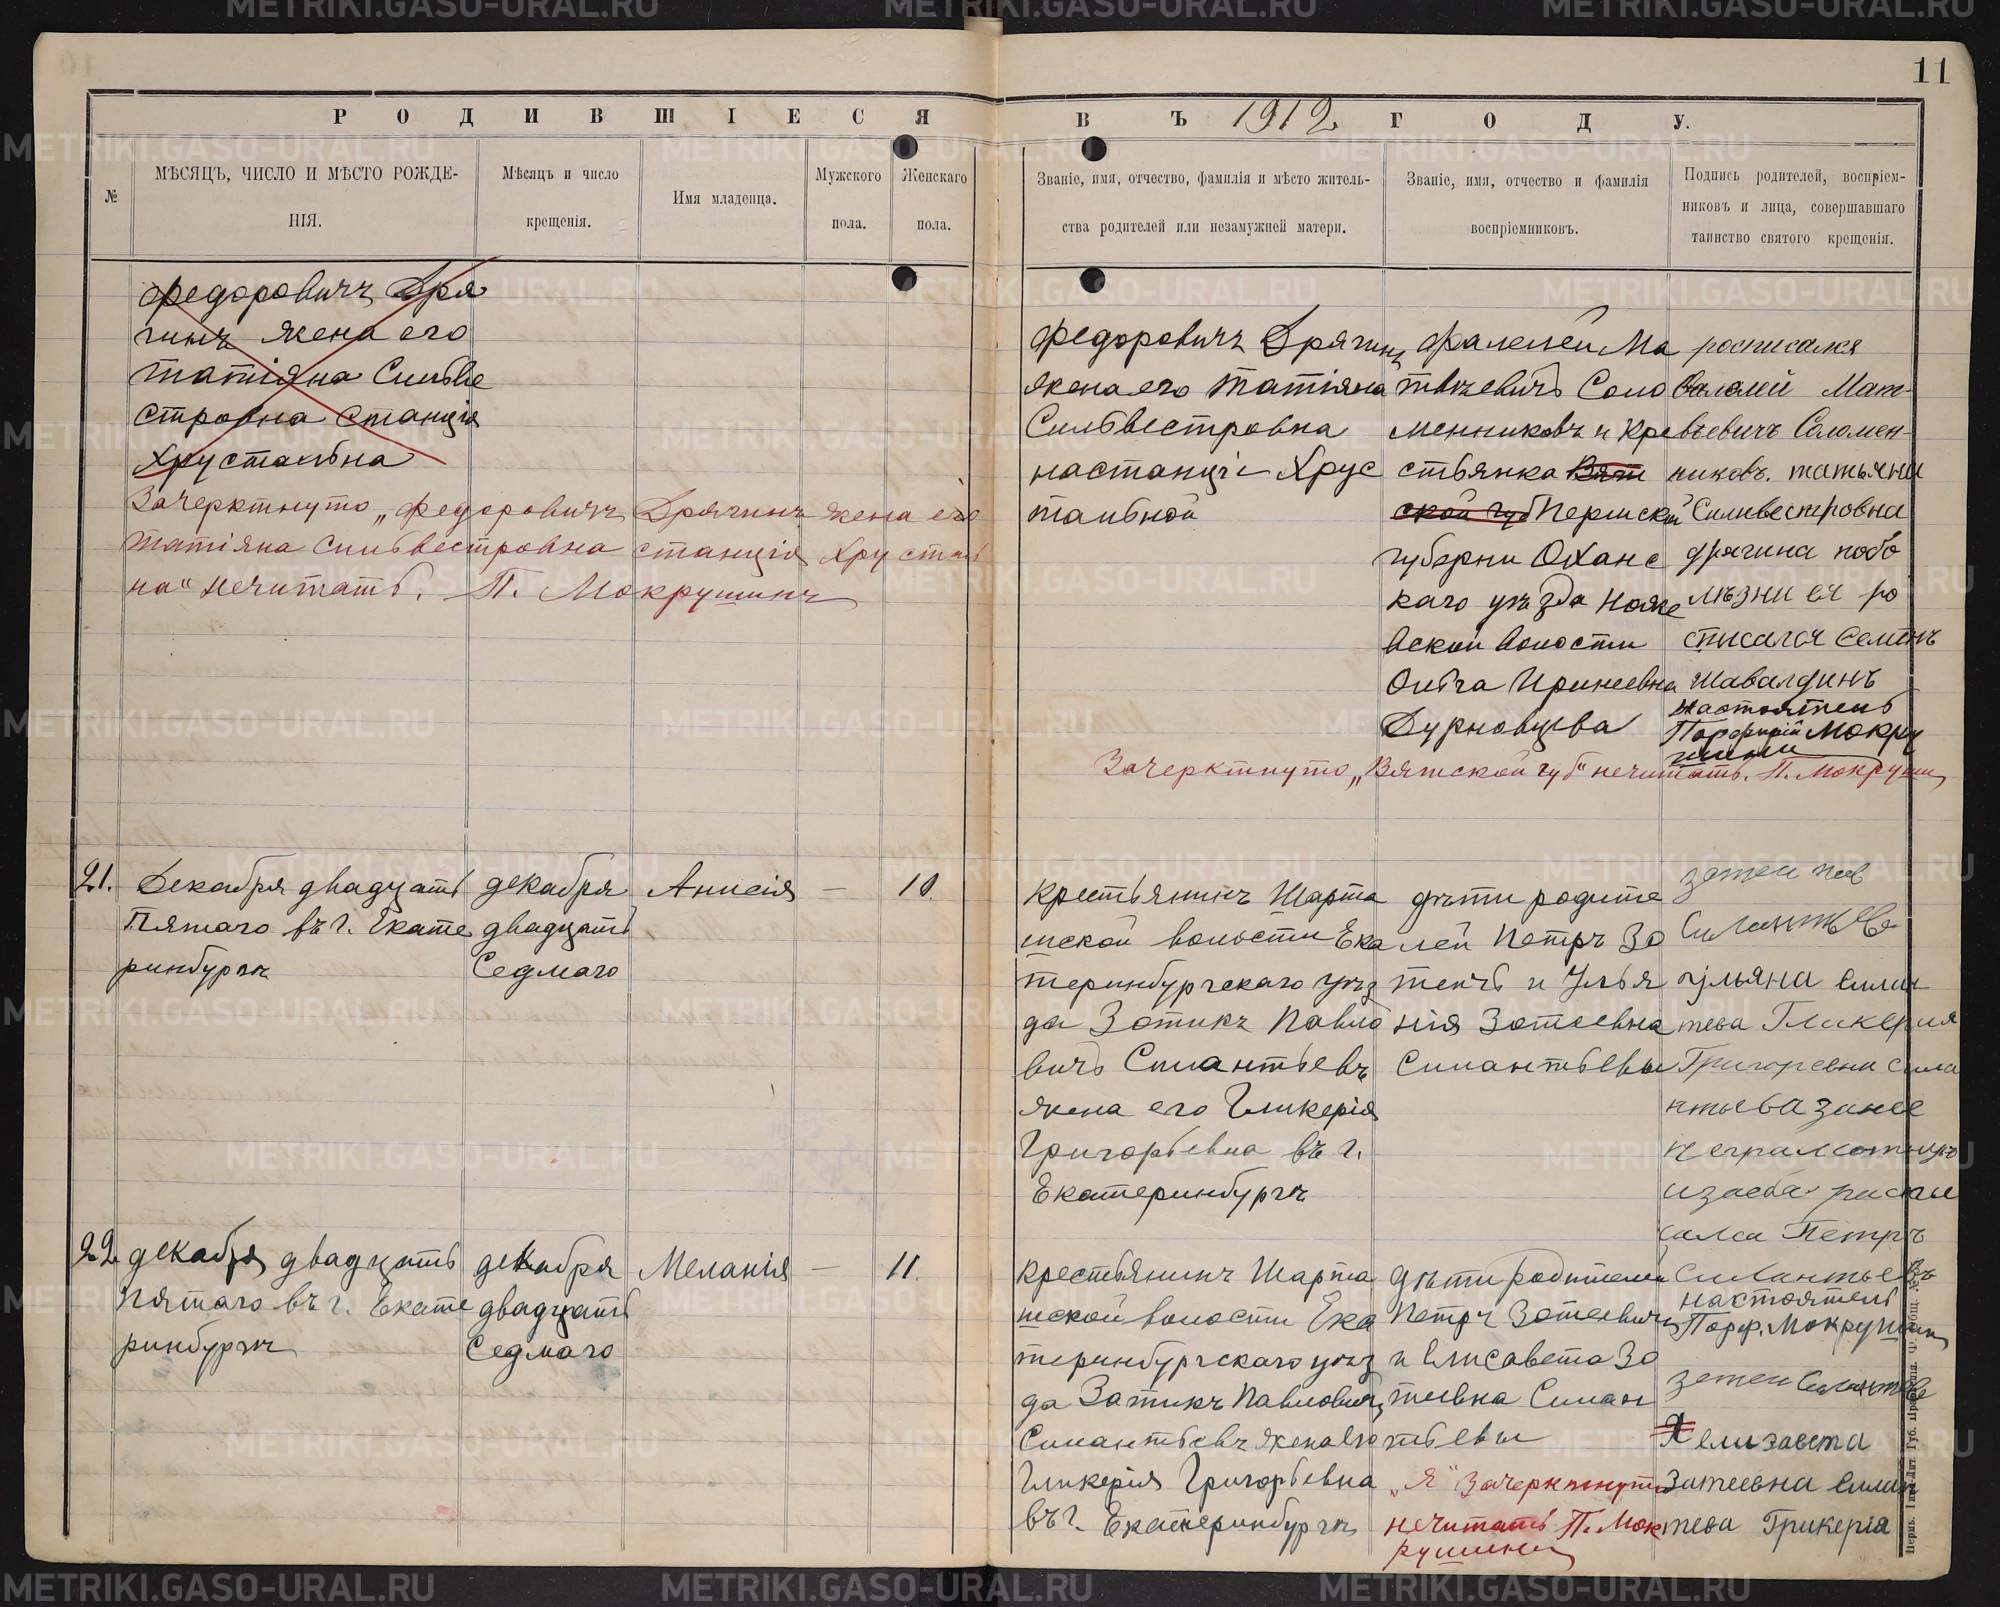 11
РОДИВШІЕСЯ ВЪ 1912 ГОДУ.
№
МѢСЯЦЪ, ЧИСЛО И МѢСТО РОЖДЕ-
НІЯ.
Мѣсяцъ и число
крещенія.
Имя младенца.
Мужского
пола.
Женскаго
пола.
Званіе, имя, отчество, фамилія и мѣсто житель-
ства родителей или незамужней матери.
Званіе, имя, отчество и фамилія
воспріемниковъ.
Подпись родителей, воспріем-
никовъ и лица, совершавшаго
таинство святого крещенія.
Федоровичъ Дря
гинъ жена его
Татіяна Сильве
стровна станція
Хрустальна
Зачеркнуто „Федоровичъ Дрягинъ жена его
Татіяна Сильвестровна станція Хрусталь
на" нечитать. П. Мокрушинъ
Федоровичъ Дрягинъ
жена его Татіяна
Сильвестровна
на станціи Хрус
тальной
Фалелей Ма
твѣевичъ Соло
менниковъ и Кре
стьянка Вят
ской губ Пермской
губерни Оханс
каго уѣзда Ноже
вской волости
Ольга Иринеевна
Дурновцева
росписался
Фалалей Мат-
вѣевичъ Соломен-
никовъ. татьяны
Силивестровна
дрягина побо
лѣзни ея ро
списался Семенъ
Шавалдинъ
Настоятель
Порфирій Мокру
шинъ
Зачеркнуто „Вятской губ" нечитать. П. Мокрушинъ
21.
Декабря двадцать
Пятаго въ г. Екате
ринбургѣ
декабря
двадцать
Седмаго
Анисія
—
10.
Крестьянинъ Шарта
шской волости Ека
теринбургскаго уѣз
да Зотикъ Павло
вичъ Силантьевъ
жена его Гликерія
Григорьевна въ г.
Екатеринбургѣ
дѣти родите
лей Петръ Зо
теичъ и Улья
нія Зотеевна
Силантьевы
Силантьеве
ульяна силан
тева Гликерия
Григоревна сила
нтьева занее
неграмотнују
Петръ
Силантьевъ
настоятель
Порф. Мокрушинъ
22.
декабря двадцать
Пятаго въ г. Екате
ринбургѣ
декабря
двадцать
Седмаго
Меланія
—
11.
Крестьянинъ Шарта
шской волости Ека
теринбургскаго уѣз
да Затикъ Павловичъ
Силантьевъ жена его
Гликерія Григорьевна
въ г. Екатеринбургѣ
дѣти родителей
Петръ Зотеевичъ
и Елисавета Зо
теевна Силан
тьевы
„Я" зачеркнуто
нечитать П. Мок
рушинъ
Я елизавета
Затеевна силан
тева Грикерія
Пермь. Тип-Лит. Губ. Правленія.
METRIKI.GASO-URAL.RU